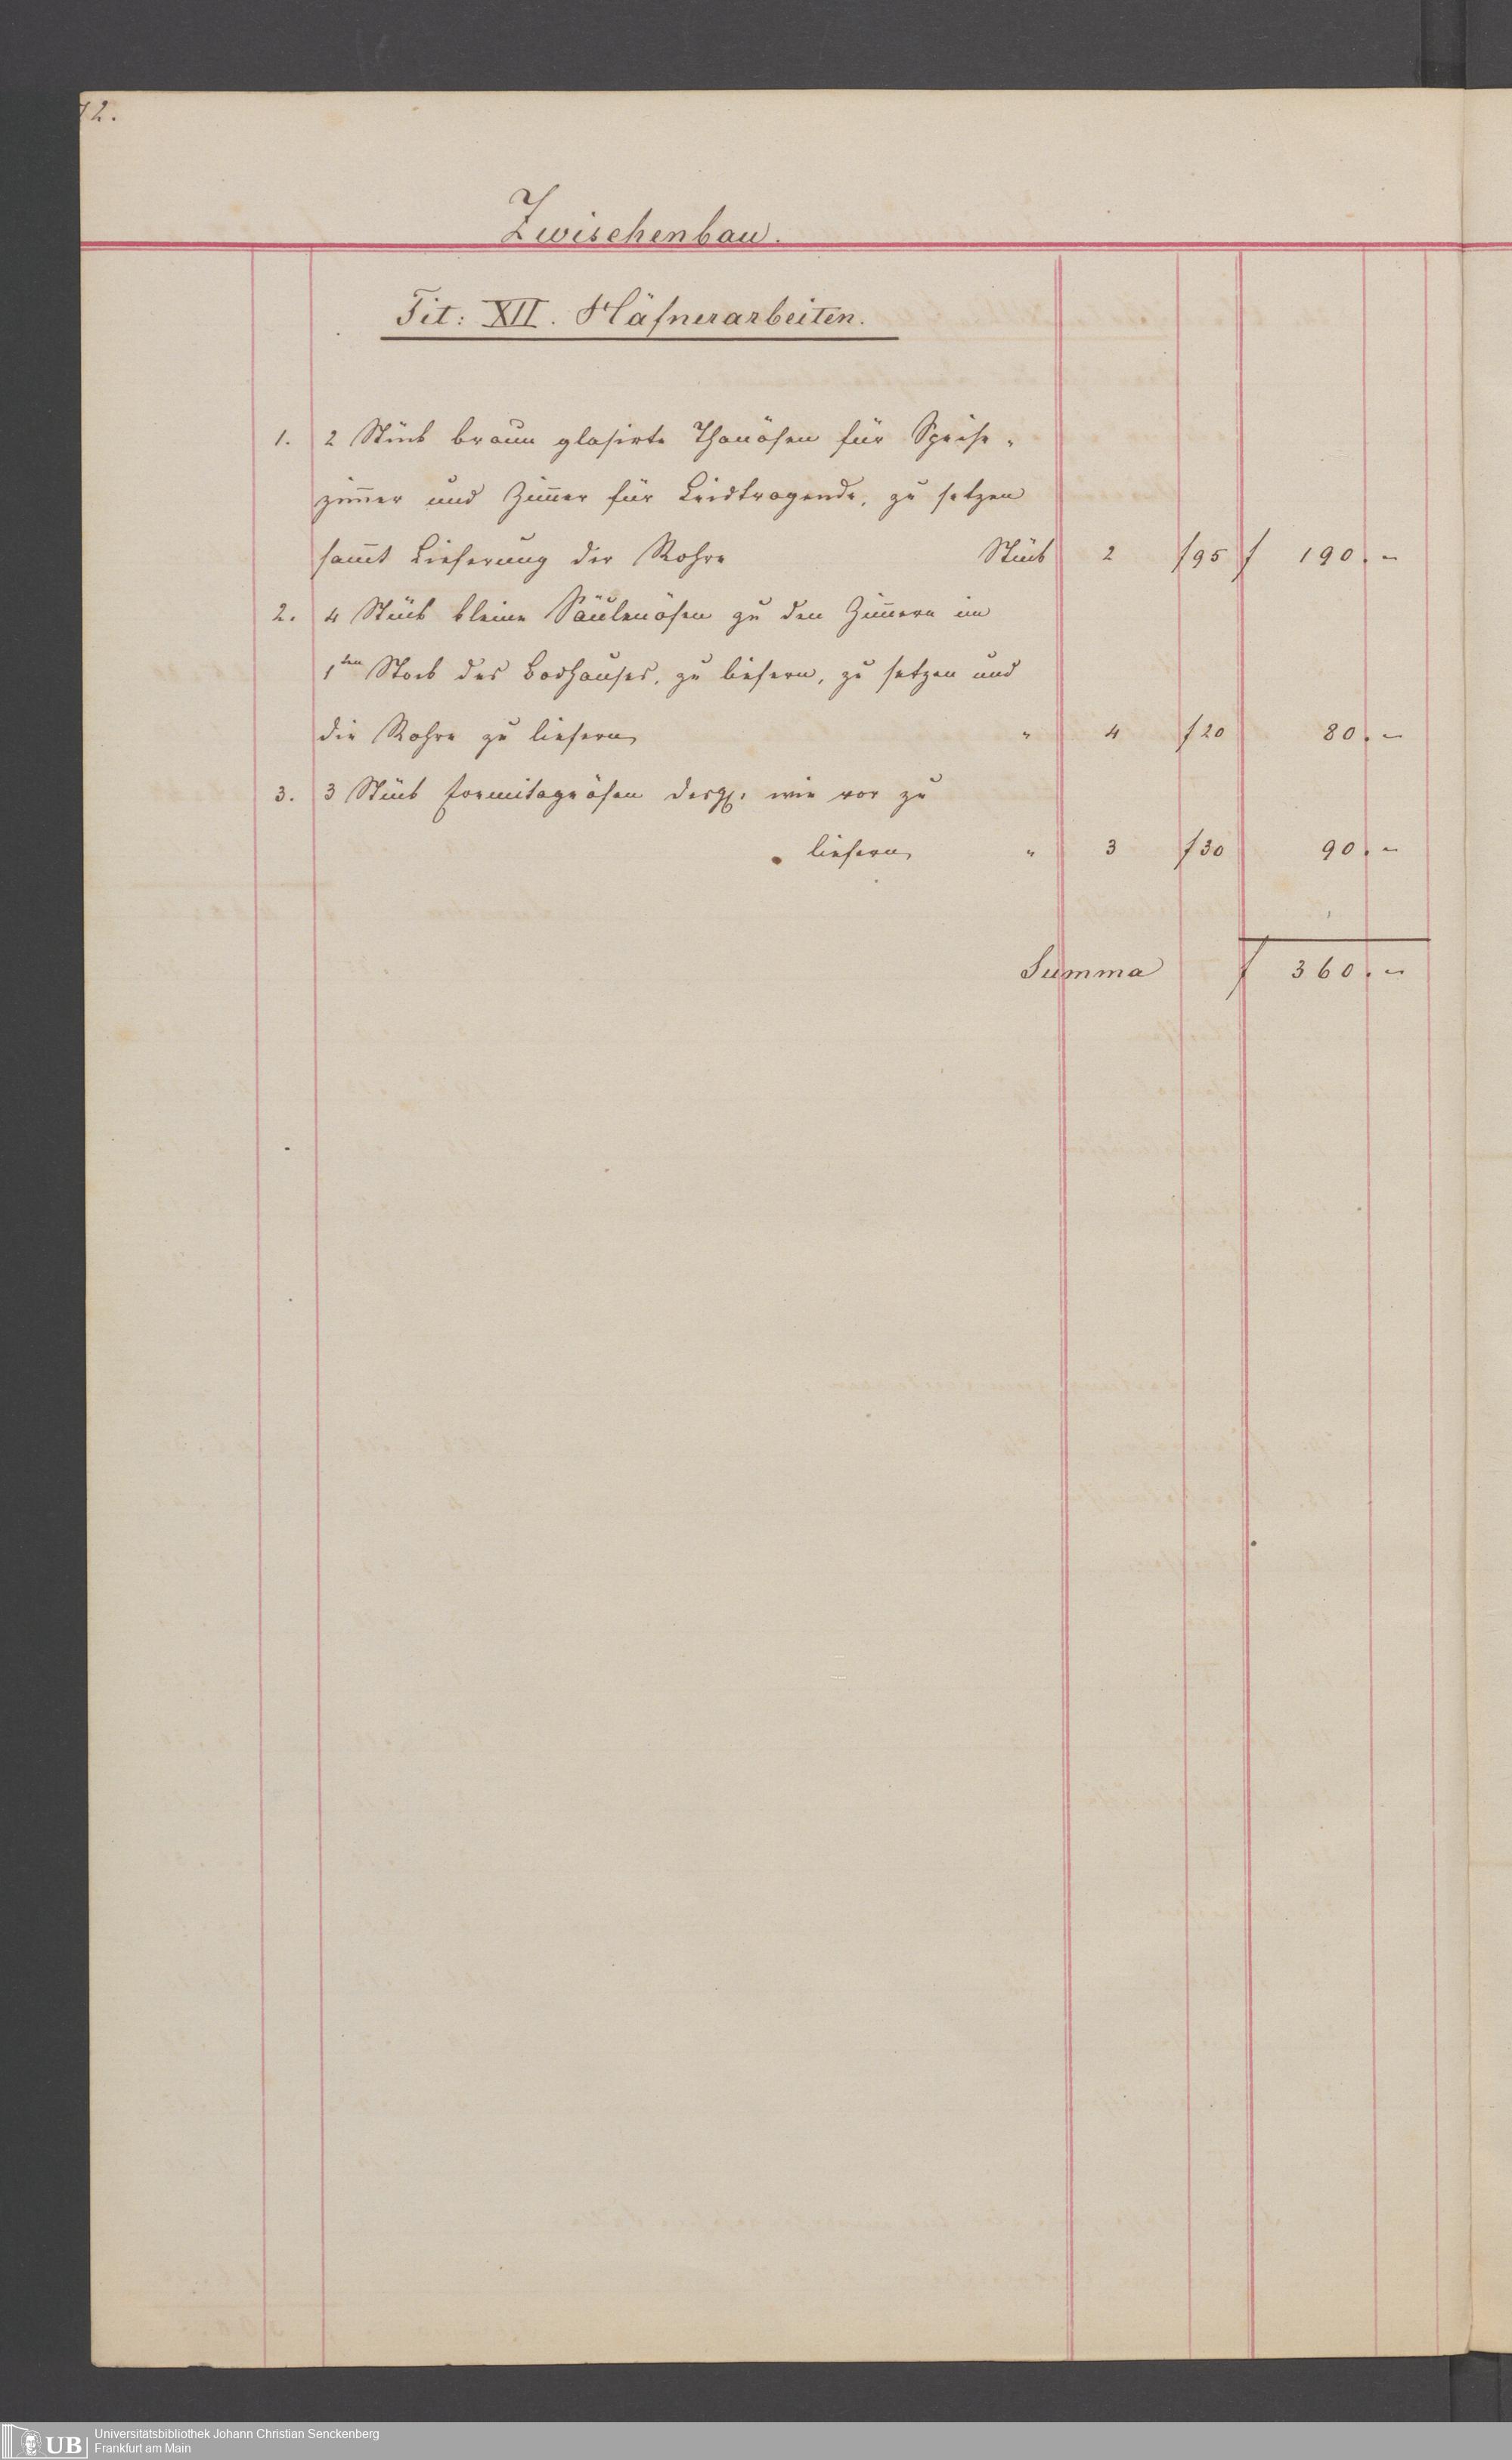 72.
Zwischenbau.
Tit: XII. Häfnerarbeiten.
1. 2 Stück braun glasirte Thonöfen für Speise-
zim̄er und Zim̄er für Leidtragende, zu setzen
sam̄t Lieferung der Rohre Stück 2 f 95 f 190. -
2. 4 Stück kleine Säulenöfen zu den Zim̄ern im
1ten Stock des Badhauses, zu liefern, zu setzen und
die Rohre zu liefern " 4 f 20 80. -
3. 3 Stück Formitageöfen desgl. wie vor zu
liefern " 3 f 30 90. -
Summa f 360. -
UB Universitätsbibliothek Johann Christian Senckenberg
Frankfurt am Main